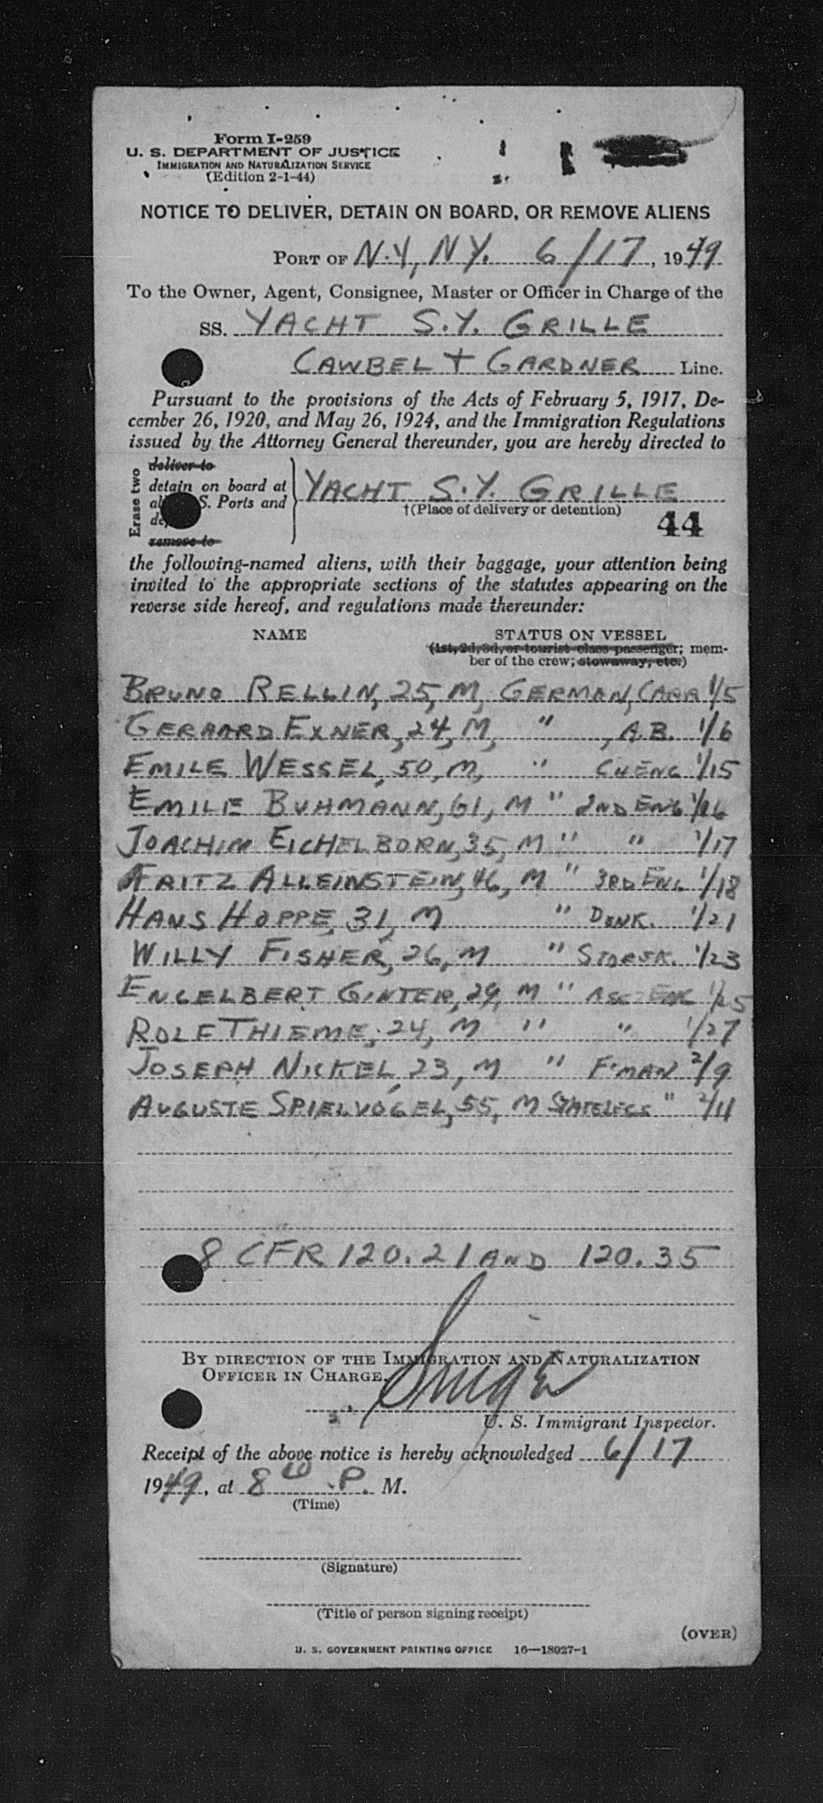 Form I-259
U. S. DEPARTMENT OF JUSTICE
IMMIGRATION AND NATURALIZATION SERVICE
(Edition 2-1-44)
NOTICE TO DELIVER, DETAIN ON BOARD, OR REMOVE ALIENS
PORT OF N.Y, NY. 6/17, 1949
To the Owner, Agent, Consignee, Master or Officer in Charge of the
SS. YACHT S.Y. GRILLE
CAWBEL + GARDNER Line.
Pursuant to the provisions of the Acts of February 5, 1917, De-
cember 26, 1920, and May 26, 1924, and the Immigration Regulations
issued by the Attorney General thereunder, you are hereby directed to
Erase two
deliver to
detain on board at
S. Ports and
remove to
YACHT S.Y. GRILLE
†(Place of delivery or detention)
44
the following-named aliens, with their baggage, your attention being
invited to the appropriate sections of the statutes appearing on the
reverse side hereof, and regulations made thereunder:
NAME STATUS ON VESSEL
(1st, 2d, 3d, or tourist class passenger; mem-
ber of the crew; stowaway, etc.)
BRUNO RELLIN, 25, M, GERMAN, CARR 1/5
GERHARD EXNER, 24, M, " , A.B. 1/6
EMILE WESSEL, 50, M, " CH ENG 1/15
EMILE BUHMANN, 61, M " 2ND ENG 1/16
JOACHIM EICHELBORN, 35, M " " 1/17
FRITZ ALLEINSTEIN, 46, M " 3RD ENG 1/18
HANS HOPPE, 31, M " DONK. 1/21
WILLY FISHER, 26, M " STORSK. 1/23
ENGELBERT GINTER, 29, M " ENG 1/25
ROLF THIEME, 24, M " " 1/27
JOSEPH NICKEL, 23, M " F'MAN 2/9
AUGUSTE SPIELVOGEL, 55, M STATELESS " 2/11
8 CFR 120.21 AND 120.35
BY DIRECTION OF THE IMMIGRATION AND NATURALIZATION
OFFICER IN CHARGE.
U. S. Immigrant Inspector.
Receipt of the above notice is hereby acknowledged 6/17
1949, at 8 P. M.
(Time)
(Signature)
(Title of person signing receipt)
(OVER)
U. S. GOVERNMENT PRINTING OFFICE 16—18027-1